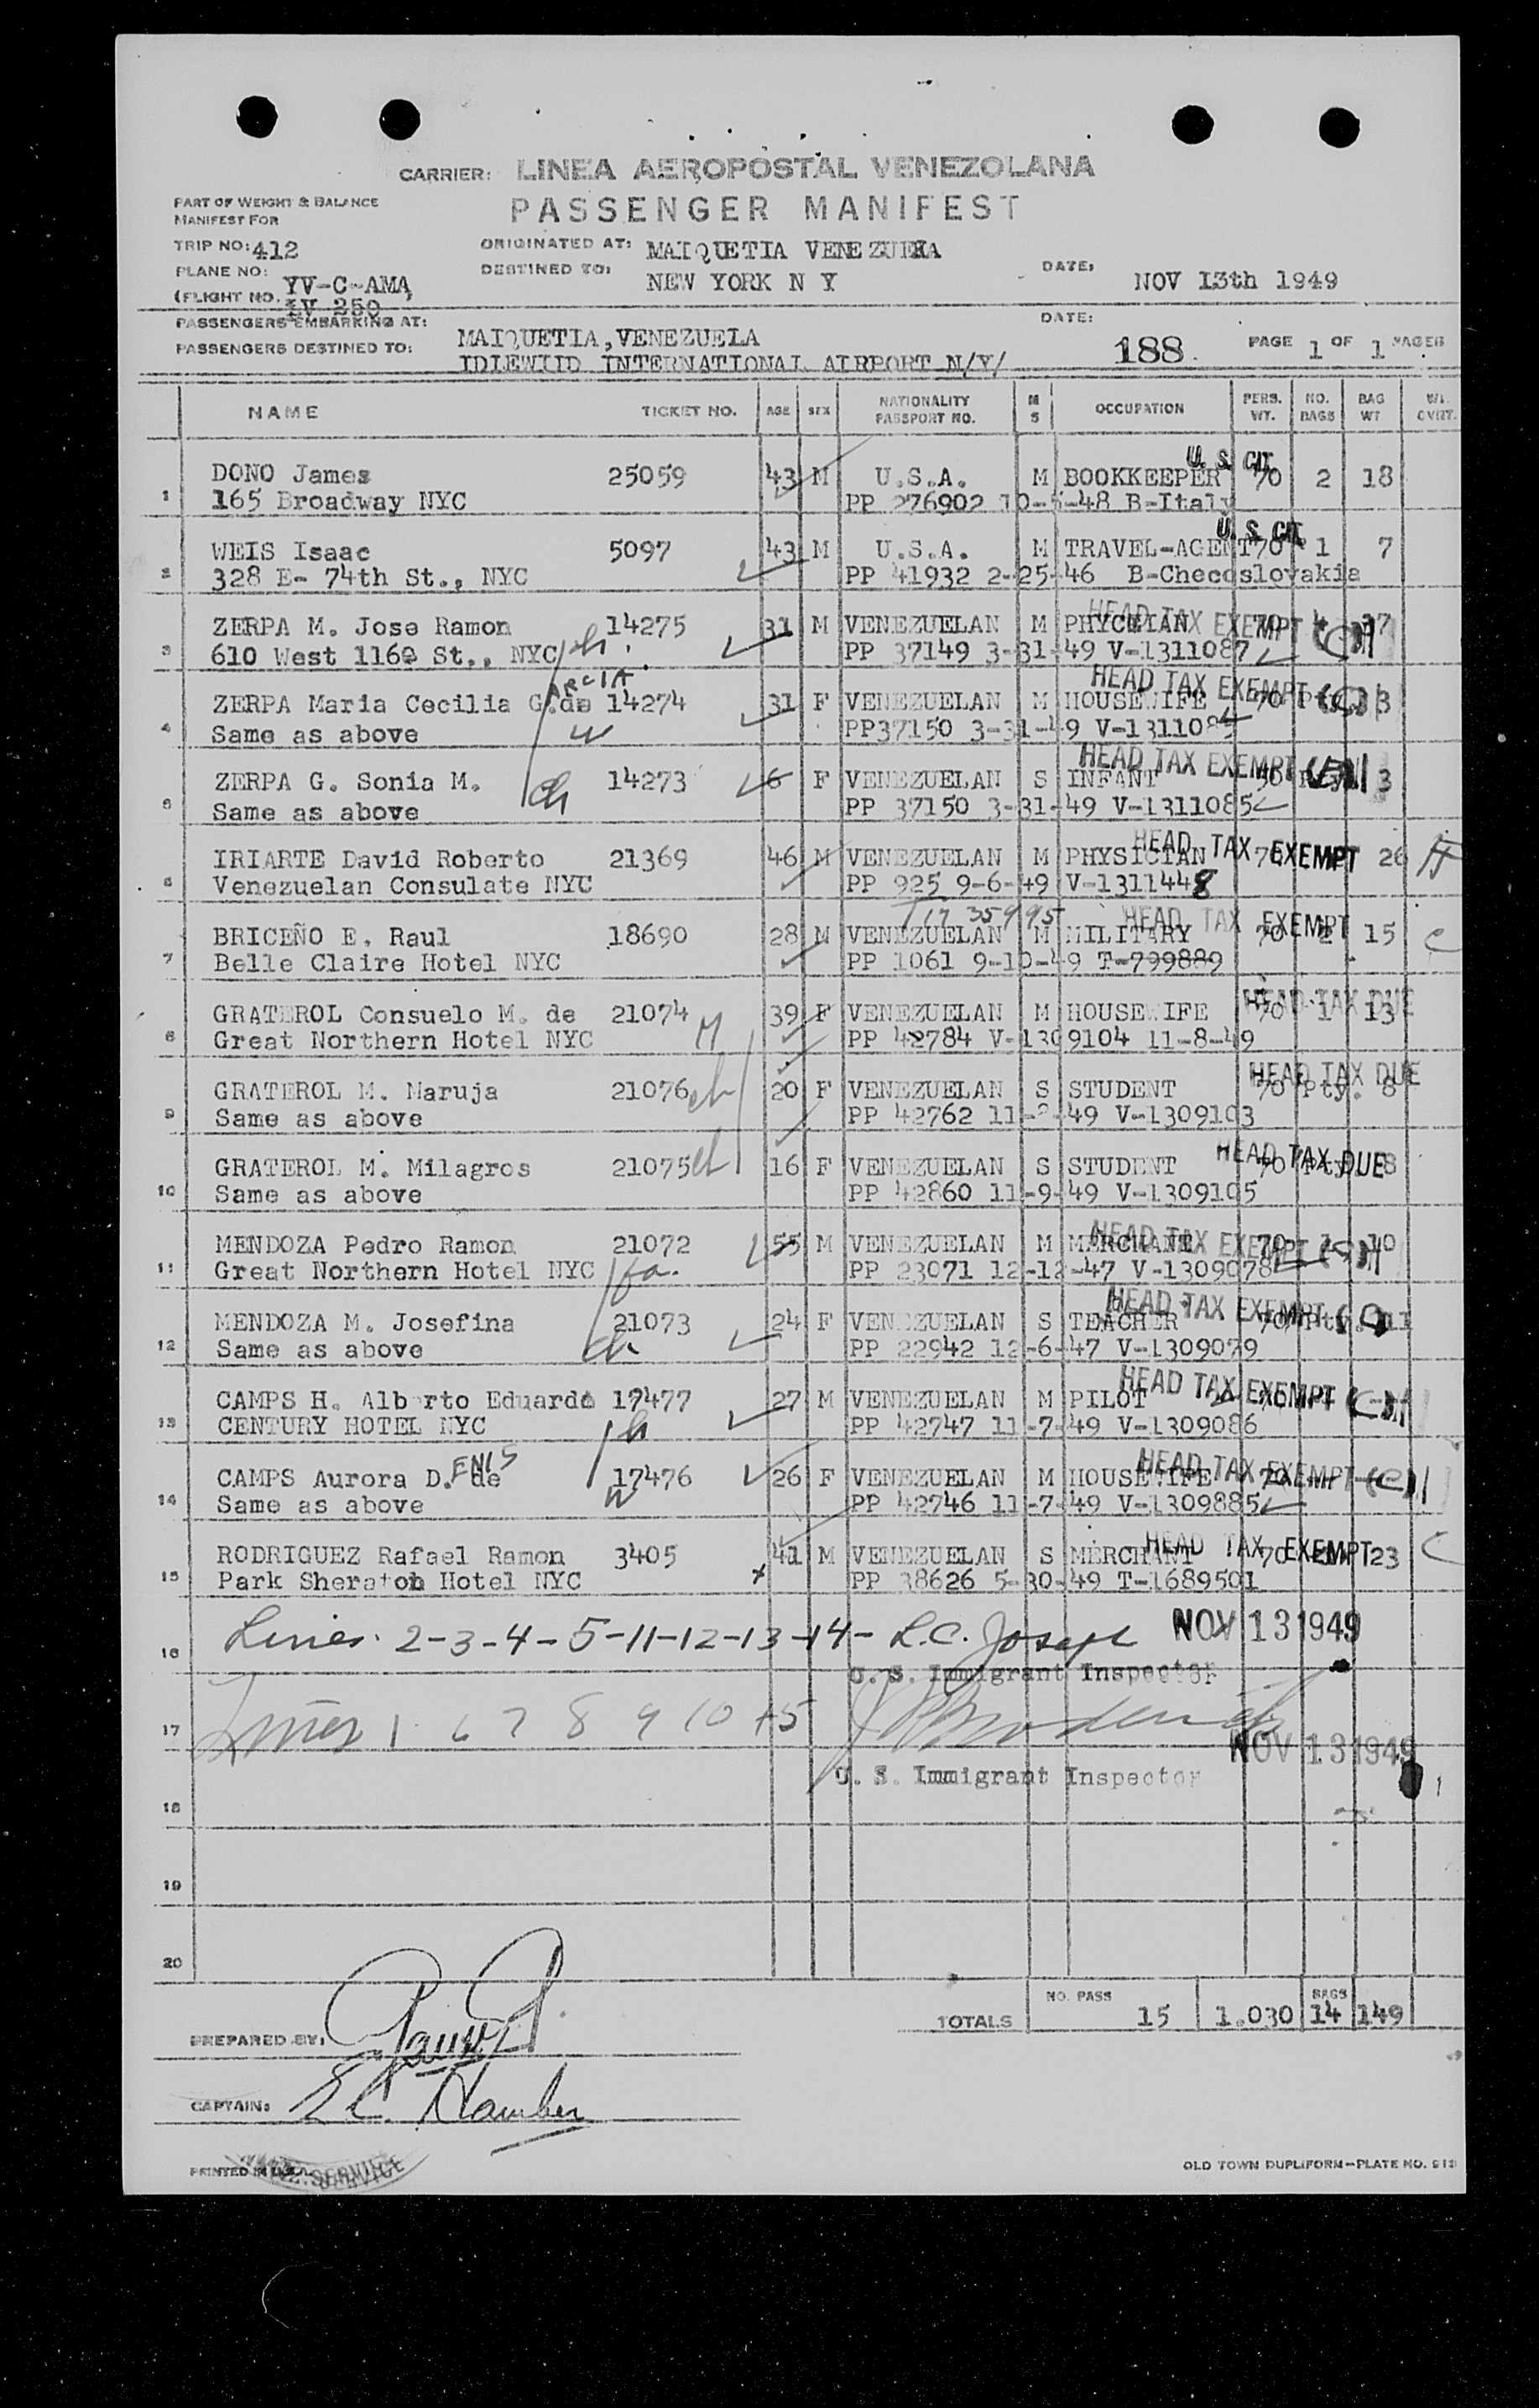 CARRIER: LINEA AEROPOSTAL VENEZOLANA
PART OF WEIGHT & BALANCE
MANIFEST FOR
PASSENGER MANIFEST
TRIP NO: 412
ORIGINATED AT: MAIQUETIA VENEZUELA
PLANE NO: YV-C-AMA
DESTINED TO: NEW YORK N Y
DATE: NOV 13th 1949
(FLIGHT NO. LV 250
PASSENGERS EMBARKING AT: MAIQUETIA,VENEZUELA
DATE:
PASSENGERS DESTINED TO: IDLEWILD INTERNATIONAL AIRPORT N/Y/
188
PAGE 1 OF 1 PAGES
NAME TICKET NO. AGE SEX NATIONALITY PASSPORT NO. M S OCCUPATION PERS. WT. NO. BAGS BAG WT WT. OVRT.
U. S. CIT.
1 DONO James 25059 43 M U.S.A. M BOOKKEEPER 70 2 18
165 Broadway NYC PP 276902 10- -48 B-Italy
U. S. CIT.
2 WEIS Isaac 5097 43 M U.S.A. M TRAVEL-AGENT 70 1 7
328 E- 74th St., NYC PP 41932 2-25-46 B-Checoslovakia
HEAD TAX EXEMPT
3 ZERPA M. Jose Ramon 14275 31 M VENEZUELAN M PHYCICIAN 70
610 West 116 St., NYC PP 37149 3-31-49 V-1311087
ARCIA
HEAD TAX EXEMPT
4 ZERPA Maria Cecilia G.de 14274 31 F VENEZUELAN M HOUSEWIFE 70 3
Same as above PP37150 3-31-49 V-131108
HEAD TAX EXEMPT
5 ZERPA G. Sonia M. 14273 6 F VENEZUELAN S INFANT 3
Same as above PP 37150 3-31-49 V-1311085
HEAD TAX EXEMPT
6 IRIARTE David Roberto 21369 46 M VENEZUELAN M PHYSICIAN 70 26
Venezuelan Consulate NYC PP 925 9-6-49 V-1311448
T17 35995
HEAD TAX EXEMPT
7 BRICEÑO E. Raul 18690 28 M VENEZUELAN M MILITARY 70 2 15 C
Belle Claire Hotel NYC PP 1061 9-10-49 T-799889
HEAD TAX DUE
8 GRATEROL Consuelo M. de 21074 39 F VENEZUELAN M HOUSEWIFE 70 1 13
Great Northern Hotel NYC M PP 42784 V-1309104 11-8-49
HEAD TAX DUE
9 GRATEROL M. Maruja 21076 ch 20 F VENEZUELAN S STUDENT 70 Pty. 8
Same as above PP 42762 11- -49 V-1309103
HEAD TAX DUE
10 GRATEROL M. Milagros 21075 ch 16 F VENEZUELAN S STUDENT 70 Pty. 8
Same as above PP 42860 11-9-49 V-1309105
HEAD TAX EXEMPT
11 MENDOZA Pedro Ramon 21072 55 M VENEZUELAN M MERCHANT 70 1 10
Great Northern Hotel NYC fa. PP 23071 12-12-47 V-1309078
HEAD TAX EXEMPT
12 MENDOZA M. Josefina 21073 24 F VENEZUELAN S TEACHER 70 Pty. 11
Same as above ch PP 22942 12-6-47 V-1309079
HEAD TAX EXEMPT
13 CAMPS H. Alberto Eduardo 17477 27 M VENEZUELAN M PILOT
CENTURY HOTEL NYC h PP 42747 11-7-49 V-1309086
ENIS
HEAD TAX EXEMPT
14 CAMPS Aurora D. de 17476 26 F VENEZUELAN M HOUSEWIFE 70
Same as above w PP 42746 11-7-49 V-1309885
HEAD TAX EXEMPT
15 RODRIGUEZ Rafael Ramon 3405 41 M VENEZUELAN S MERCHANT 70 23 C
Park Sheraton Hotel NYC x PP 38626 5-30-49 T-1689501
16 Lines 2-3-4-5-11-12-13-14- L.C. Joseph NOV 13 1949
U. S. Immigrant Inspector
17 Lines 1 6 7 8 9 10 15
NOV 13 1949
U. S. Immigrant Inspector
18
19
20
TOTALS NO. PASS 15 1.030 BAGS 14 149
PREPARED BY:
CAPTAIN:
PRINTED IN U.S.A.
SERVICE
OLD TOWN DUPLIFORM—PLATE NO. 913